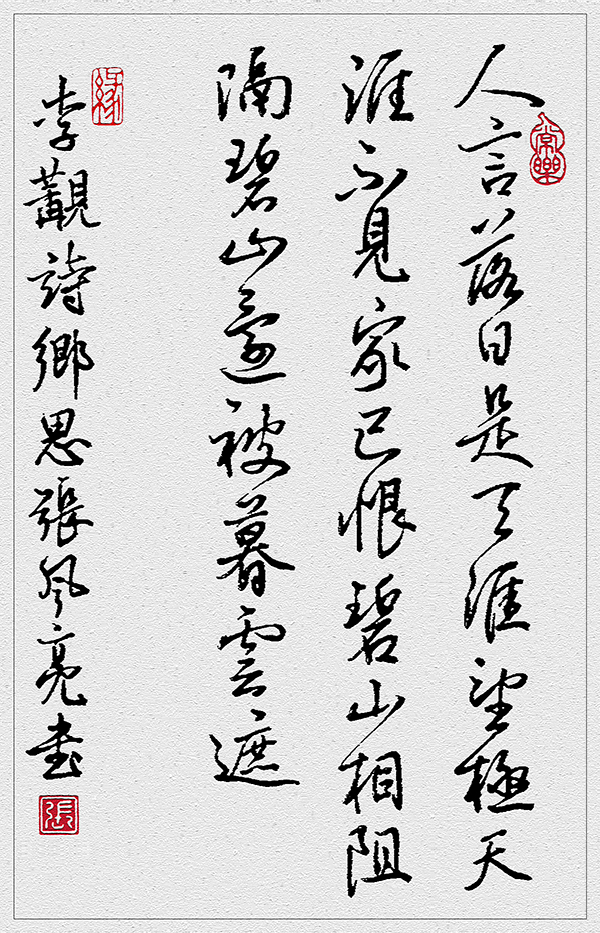 常樂
人言落日是天涯望極天
涯不見家已恨碧山相阻
隔碧山還被暮雲遮
緣
李觀詩鄉思張風亮書
張